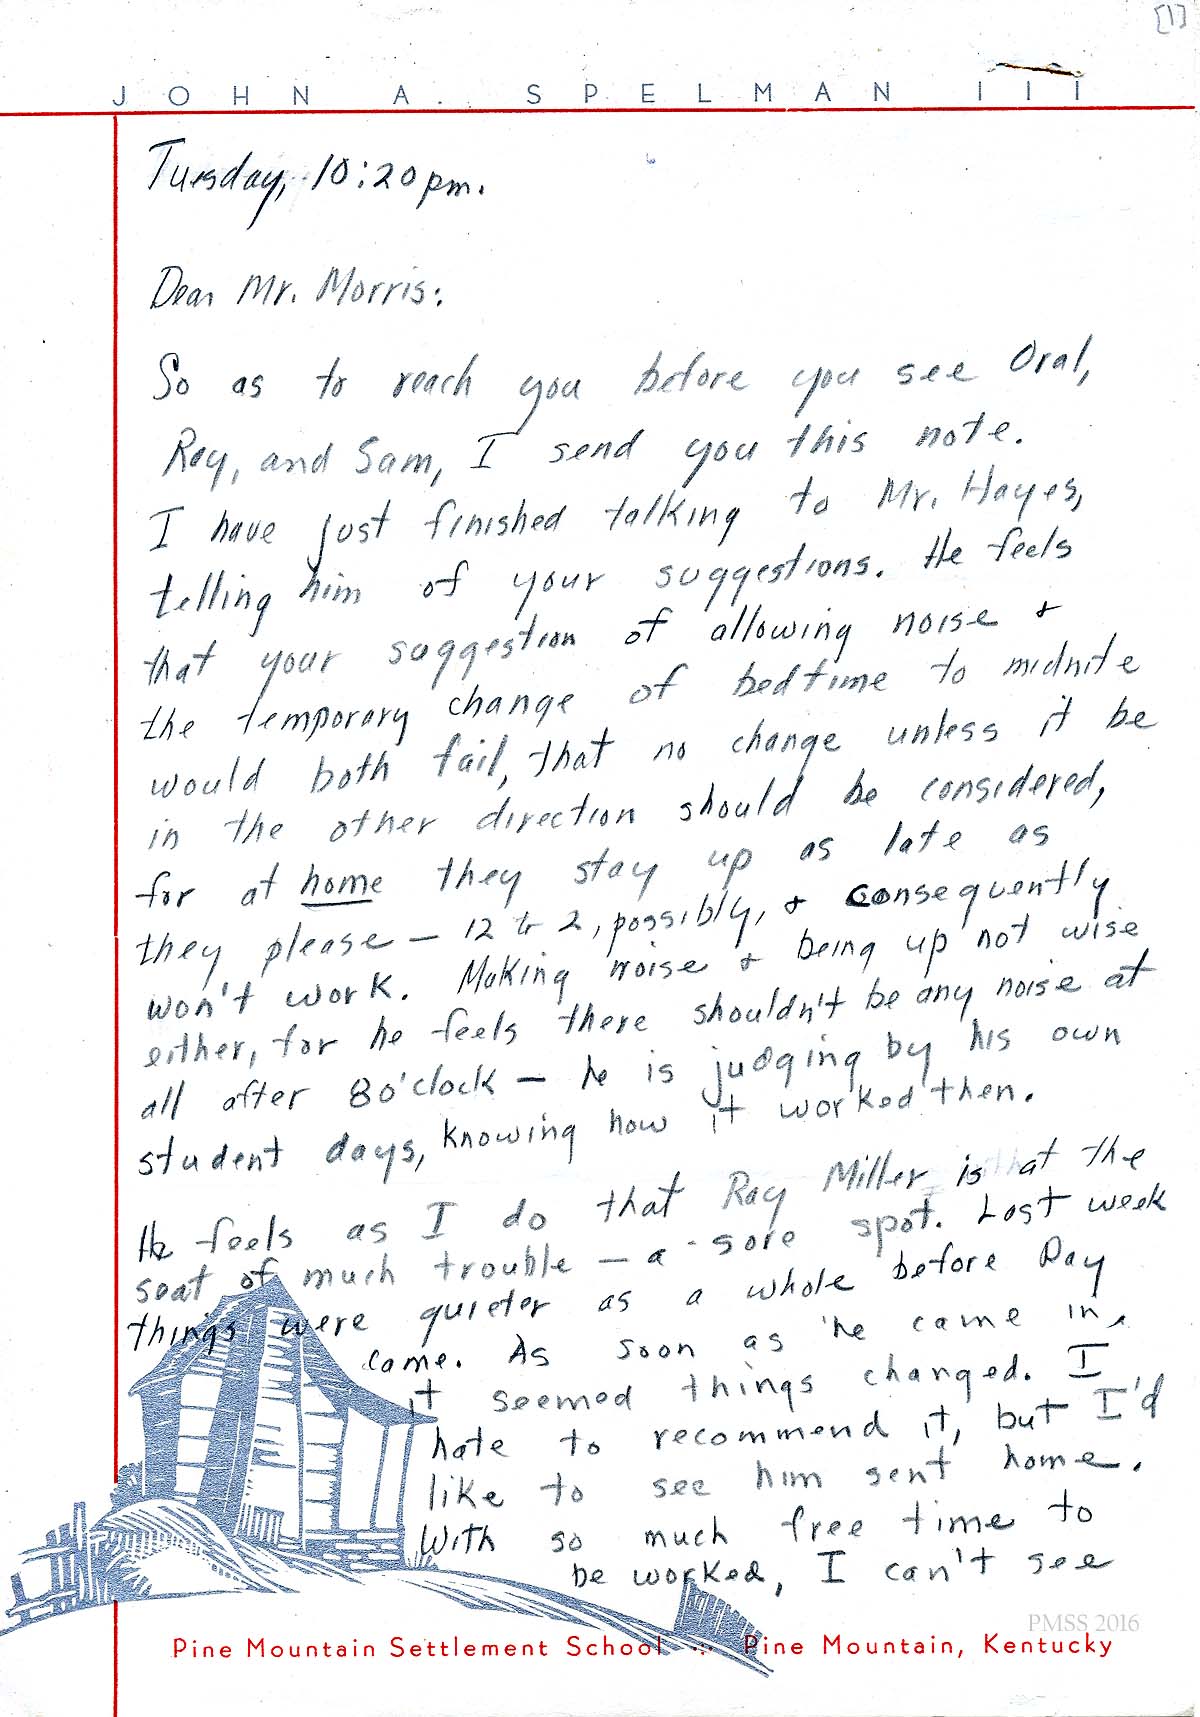 [1]
JOHN A. SPELMAN III
Tuesday, 10:20pm.
Dear Mr. Morris:
So as to reach you before you see Oral,
Ray, and Sam, I send you this note.
I have just finished talking to Mr. Hayes,
telling him of your suggestions. He feels
that your suggestion of allowing noise &
the temporary change of bedtime to midnite
would both fail, that no change unless it be
in the other direction should be considered,
for at home they stay up as late as
they please — 12 to 2, possibly, & consequently
won't work. Making noise & being up not wise
either, for he feels there shouldn't be any noise at
all after 8 o'clock — he is judging by his own
student days, knowing how it worked then.
He feels as I do that Ray Miller is at the
seat of much trouble — a sore spot. Last week
things were quieter as a whole before Ray
came. As soon as he came in,
it seemed things changed. I
hate to recommend it, but I'd
like to see him sent home.
With so much free time to
be worked, I can't see
PMSS 2016
Pine Mountain Settlement School ∴ Pine Mountain, Kentucky